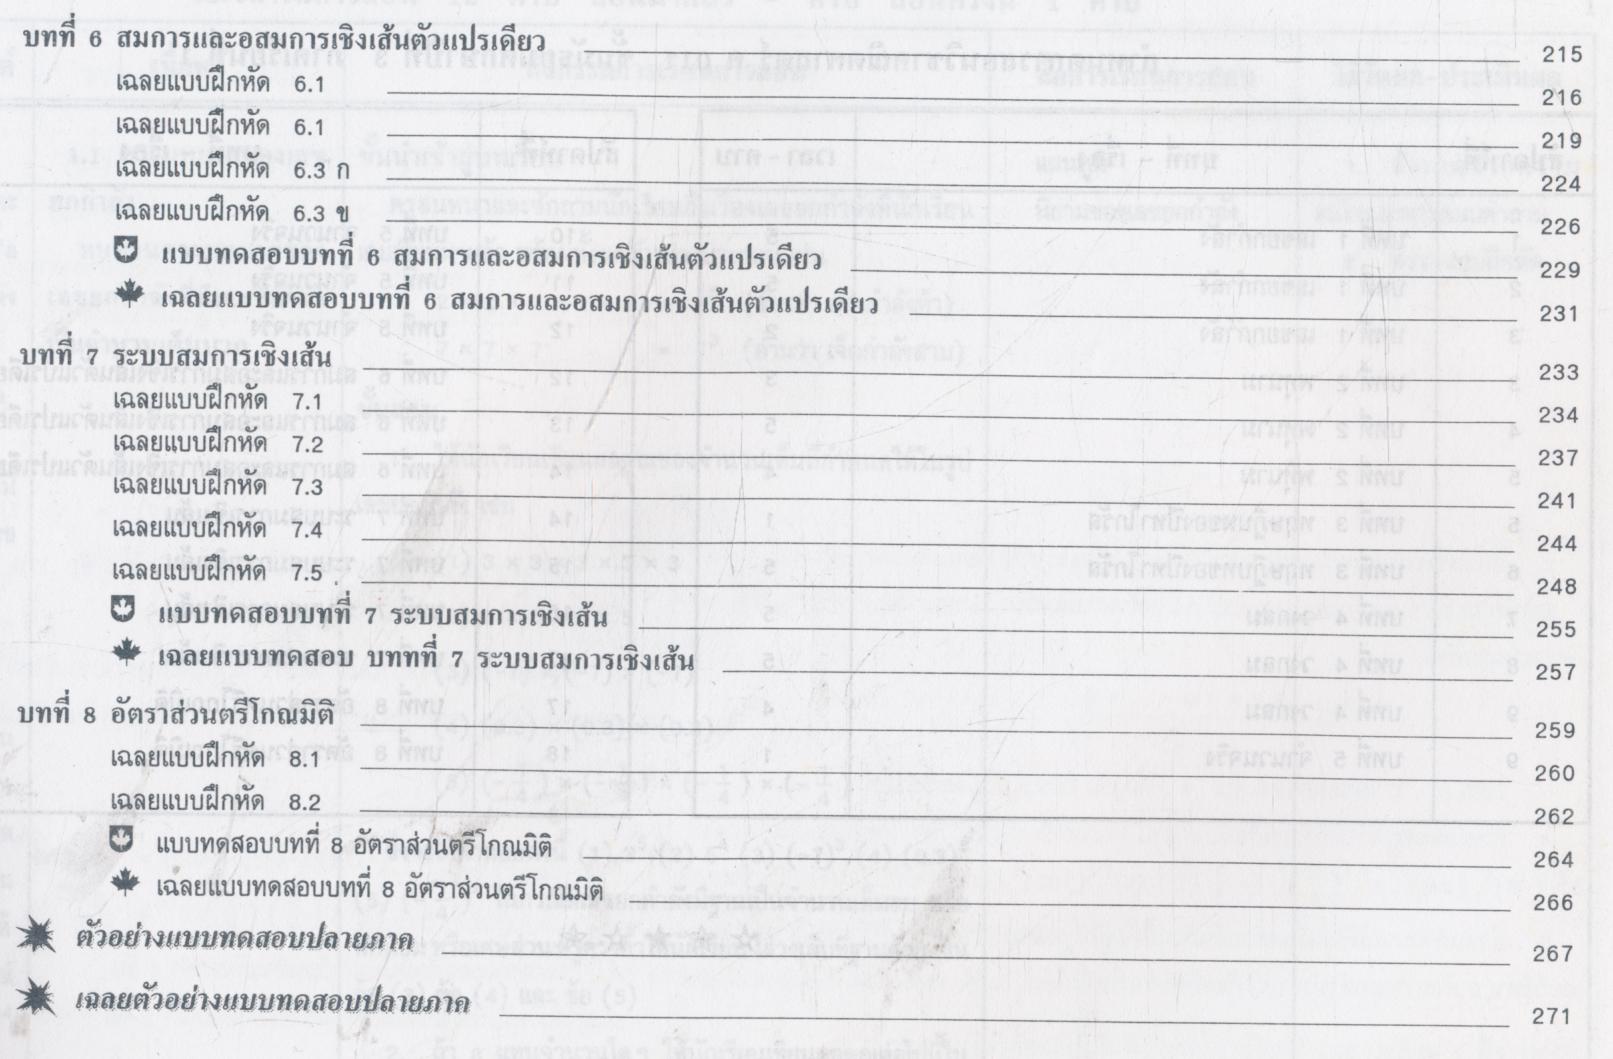 บทที่ 6 สมการและอสมการเชิงเส้นตัวแปรเดียว 215
เฉลยแบบฝึกหัด 6.1 216
เฉลยแบบฝึกหัด 6.1 219
เฉลยแบบฝึกหัด 6.3 ก 224
เฉลยแบบฝึกหัด 6.3 ข 226
แบบทดสอบบทที่ 6 สมการและอสมการเชิงเส้นตัวแปรเดียว 229
เฉลยแบบทดสอบบทที่ 6 สมการและอสมการเชิงเส้นตัวแปรเดียว 231
บทที่ 7 ระบบสมการเชิงเส้น 233
เฉลยแบบฝึกหัด 7.1 234
เฉลยแบบฝึกหัด 7.2 237
เฉลยแบบฝึกหัด 7.3 241
เฉลยแบบฝึกหัด 7.4 244
เฉลยแบบฝึกหัด 7.5 248
แบบทดสอบบทที่ 7 ระบบสมการเชิงเส้น 255
เฉลยแบบทดสอบ บทที่ที่ 7 ระบบสมการเชิงเส้น 257
บทที่ 8 อัตราส่วนตรีโกณมิติ 259
เฉลยแบบฝึกหัด 8.1 260
เฉลยแบบฝึกหัด 8.2 262
แบบทดสอบบทที่ 8 อัตราส่วนตรีโกณมิติ 264
เฉลยแบบทดสอบบทที่ 8 อัตราส่วนตรีโกณมิติ 266
ตัวอย่างแบบทดสอบปลายภาค 267
เฉลยตัวอย่างแบบทดสอบปลายภาค 271